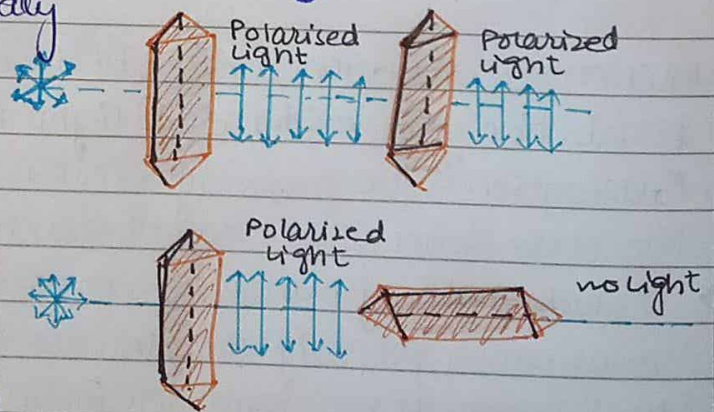 Polarised
Light
Polarized
Light
Polarized
Light
no light